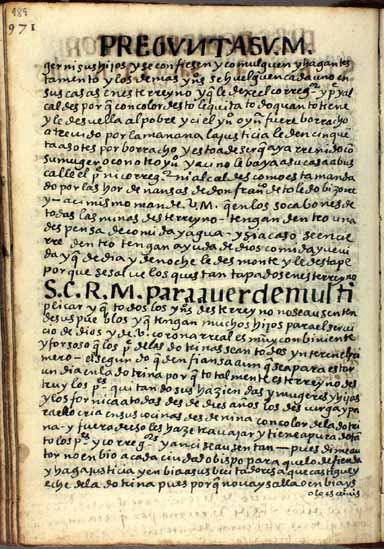 989
971
PREGVNTA SV.M.
ger ni sus hijos y se confiesen y comulguen y hagan tes
tamento y los demas yns se huelguen cada uno en
sus casas en este rreyno y q le dexe el correg.or y p.e y al
caldes porq con color desto le quita todo quanto tiene
y le desuella al pobre y ci el yn o yna fuere borracho
a rrecudo por la manana la justicia le den cinque
ta asotes por borracho y esto a de ser q aya rrenido co
su muger o con otro yn y aci no le baya a su casa a bus
calle el p.e ni correg.or ni alcaldes como esta manda
do por las hordenansas de don fran.co de toledo bizorre
y - aci mismo mande V.M. q en los socabones de
todas las minas deste rreyno - tengan dentro una
despensa de comida y agua - y si a caso se encie
rre dentro tengan ayuda de dios comida y uevi
da y q de dia y de noche le desmonte y le destape
porque se salve los questan tapados en este rreyno
S.C.R.M. para aver de multi
plicar y q todos los yns deste rreyno no se ausenten
de sus pueblos y q tengan muchos hijos para el serui
cio de dios y de la corona real es muy conbiniente
y forsoso q los p.es de las dotrinas sean todos ynterines pri
mero - el segundo q den fiansa aunq sea para estar
un dia en la dotrina porq totalmente este rreyno des
truy los p.es quitando sus haziendas y mugeres y hijas
y los fornica a todas desde dies años los desuirga y pa
ra ello cria en sus cocinas desde nina con color de la dotri
na - y fuera deso les haze trauajar y tiene a pura do ta
to los p.es y corregores y anci se ausentan - pues dime au
tor no enbio a cada ciudad obispo para que lo defienda
y haga justicia y enbia sus becitadores a que castigue y
eche de la dotrina pues porq no vays alla o enbiays
o los cinis